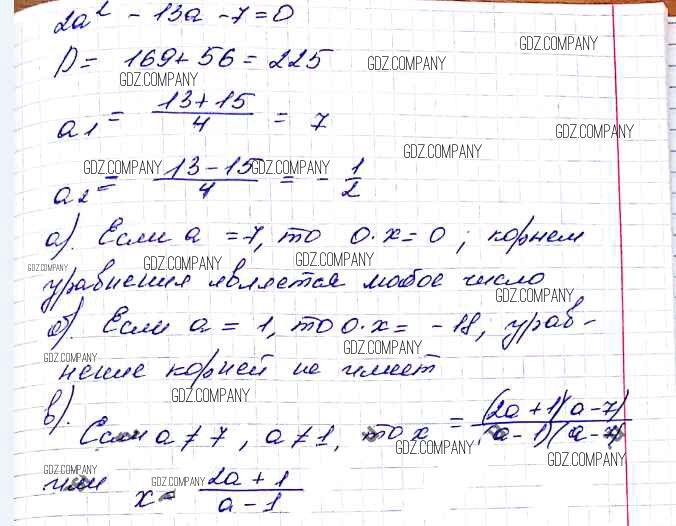 2a² - 13a - 7 = 0
GDZ.COMPANY
D = 169 + 56 = 225
GDZ.COMPANY
GDZ.COMPANY
a₁ = (13 + 15)/4 = 7
GDZ.COMPANY
GDZ.COMPANY
a₂ = (13 - 15)/4 = - 1/2
GDZ.COMPANY GDZ.COMPANY
а). Если a = 7, то 0·x = 0; корнем
GDZ.COMPANY GDZ.COMPANY GDZ.COMPANY
уравнения является любое число
GDZ.COMPANY
б). Если a = 1, то 0·x = - 18; урав-
GDZ.COMPANY GDZ.COMPANY
нение корней не имеет
GDZ.COMPANY
в). Если a ≠ 7, a ≠ 1, то x = (2a + 1)(a - 7)/(a - 1)(a - 7)
GDZ.COMPANY
GDZ.COMPANY
или x = (2a + 1)/(a - 1)
GDZ.COMPANY GDZ.COMPANY